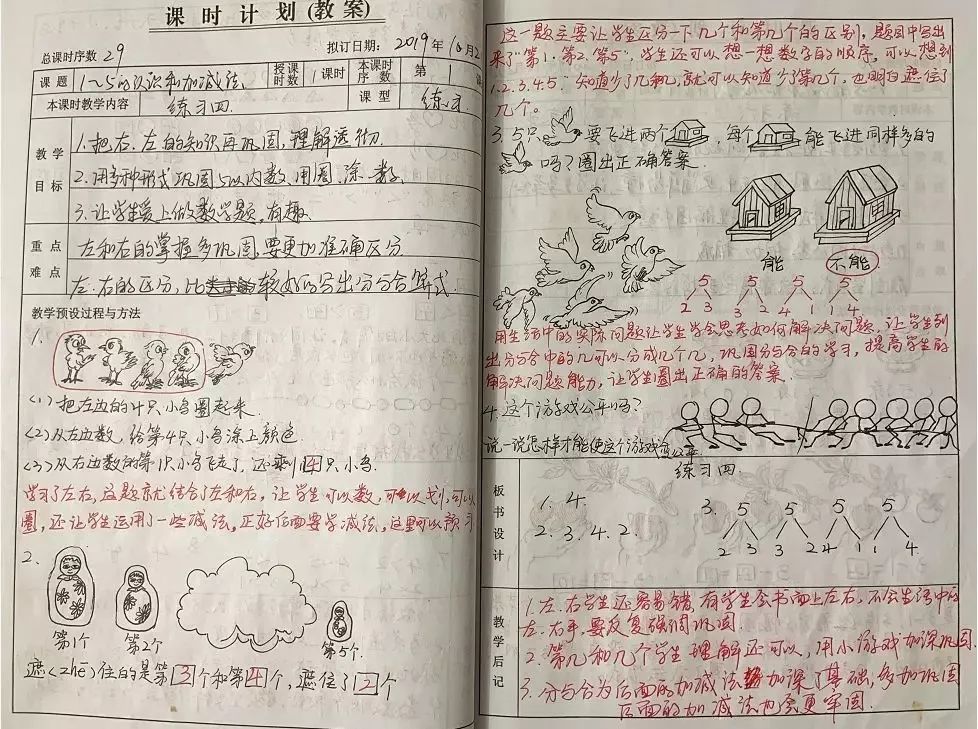 课时计划(教案)
总课时序数 29 拟订日期： 2019年10月2
课题 1~5的认识和加减法 授课时数 1课时 本课时序数 第 1
本课时教学内容 练习四 课型 练习
教学目标
1.把右、左的知识再巩固,理解透彻.
2.用多种形式巩固5以内数,用圈、涂、数.
3.让学生爱上做数学题,有趣.
重点难点
左和右的掌握多巩固,要更加准确区分
左、右的区分,比较好的写出分与合算式.
教学预设过程与方法
1.
(1)把左边的4只小鸟圈起来.
(2)从左边数,给第4只小鸟涂上颜色.
(3)从右边数的第1只小鸟飞走了,还剩4只小鸟.
学习了左右,这题就结合了左和右,让学生可以数,可以划,可以
圈,还让学生运用了一些减法,正好后面要学减法,这里可以预习
2.
第1个 第2个 第5个.
遮(zhē)住的是第3个和第4个,遮住了2个
这一题主要让学生区分一下几个和第几个的区别,题目中写出
来了“第1、第2、第5”,学生还可以想一想数字的顺序,可以想到
1.2.3.4.5.知道少了几和几,就可以知道少了第几个,也明白遮住了
几个。
3. 5只 要飞进两个 ,每个 能飞进同样多的
吗?圈出正确答案.
能 不能
5 5 5 5
2 3 3 2 4 1 1 4
用生活中的实际问题让学生学会思考如何解决问题,让学生列
出分与合中的几可以分成几个几,巩固分与合的学习,提高学生的
解决问题能力,让学生圈出正确的答案.
4.这个游戏公平吗?
说一说怎样才能使这个游戏公平
板书设计
练习四
1. 4. 3. 5 5 5 5
2. 3. 4. 2. 2 3 3 2 4 1 1 4
教学后记
1.左、右学生还容易错,有学生会书面上左右,不会生活中的
左、右手,要反复强调巩固.
2.第几和几个学生理解还可以,用小游戏加深巩固.
3.分与合为后面的加减法加深了基础,多加巩固
后面的加减法内会更牢固.